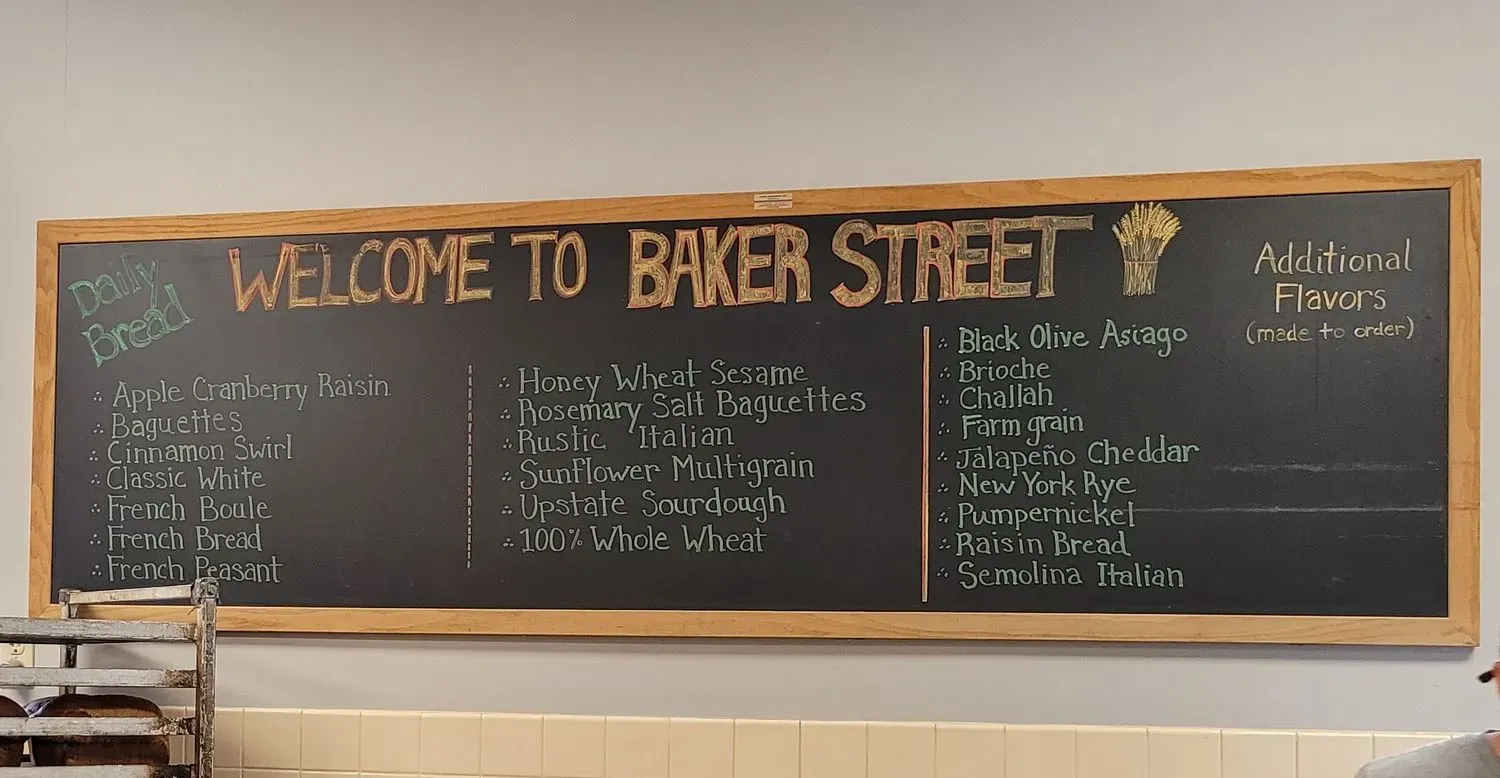 WELCOME TO BAKER STREET
Daily
Bread
Apple Cranberry Raisin
Baguettes
Cinnamon Swirl
Classic White
French Boule
French Bread
French Peasant
Honey Wheat Sesame
Rosemary Salt Baguettes
Rustic Italian
Sunflower Multigrain
Upstate Sourdough
100% Whole Wheat
Additional
Flavors
(made to order)
Black Olive Asiago
Brioche
Challah
Farm grain
Jalapeño Cheddar
New York Rye
Pumpernickel
Raisin Bread
Semolina Italian